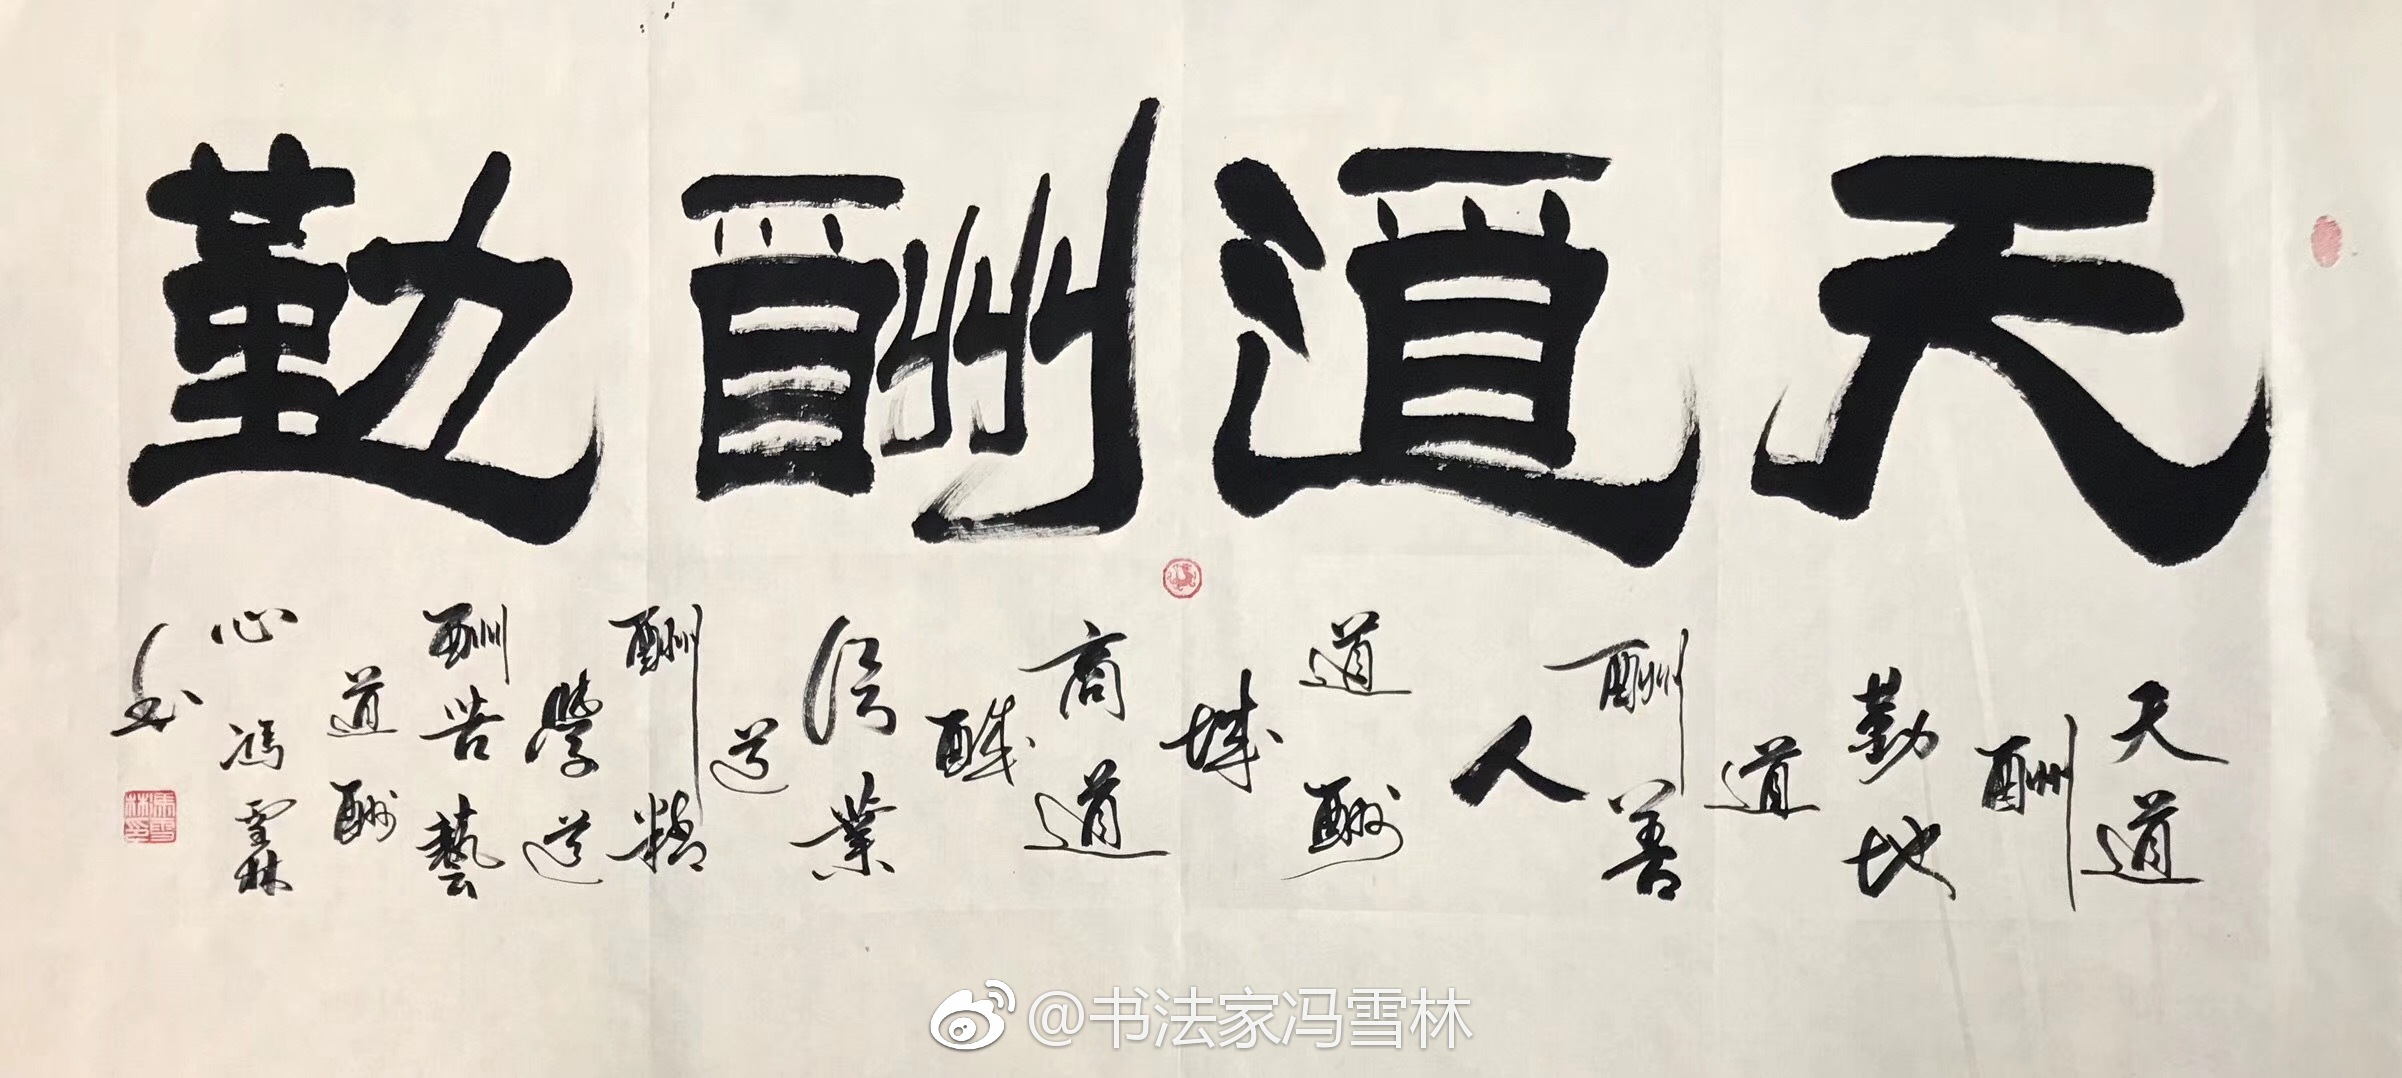 天道酬勤
天道
酬
勤地
道
酬善
人
道酬
誠
商道
酬
信業
道
酬精
學道
酬苦藝
道酬
心馮雪林
書
馮雪林印
@书法家冯雪林